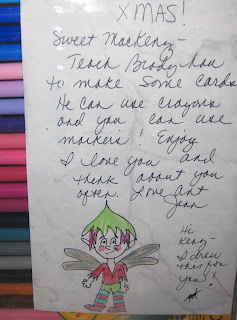 XMAS!
Sweet MacKenzy-
Teach Brody how
to make some cards
He can use crayons
and you can use
markers! Enjoy
I love you and
think about you
often. Love Ant
Hi
Kenzy-
I drew
this for
you!